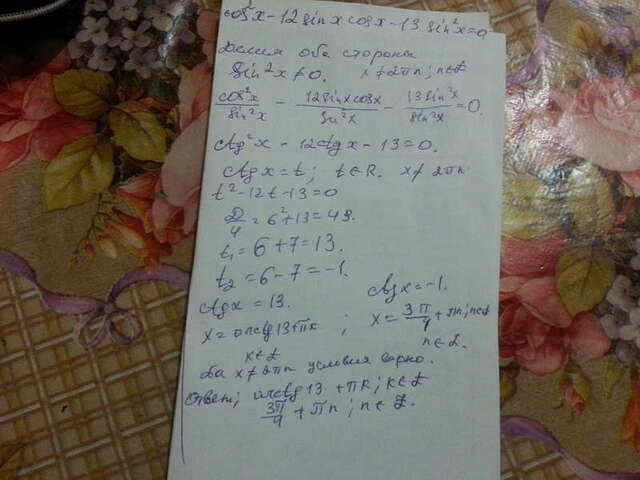 cos²x - 12 sin x cos x - 13 sin²x = 0
Делим оба стороны
sin²x ≠ 0. x ≠ 2πn; n∈Z
cos²x/sin²x - 12 sin x cos x/sin²x - 13 sin²x/sin²x = 0.
ctg²x - 12ctgx - 13 = 0.
ctg x = t; t∈R. x ≠ 2πn
t² - 12t - 13 = 0
D/4 = 6² + 13 = 49.
t₁ = 6 + 7 = 13.
t₂ = 6 - 7 = -1.
ctgx = 13. ctgx = -1.
x = arcctg 13 + πk; x = 3π/4 + πn; n∈Z
k∈Z n∈Z.
x ≠ 2πn условия верно.
Ответ; arcctg 13 + πk; k∈Z
3π/4 + πn; n∈Z.